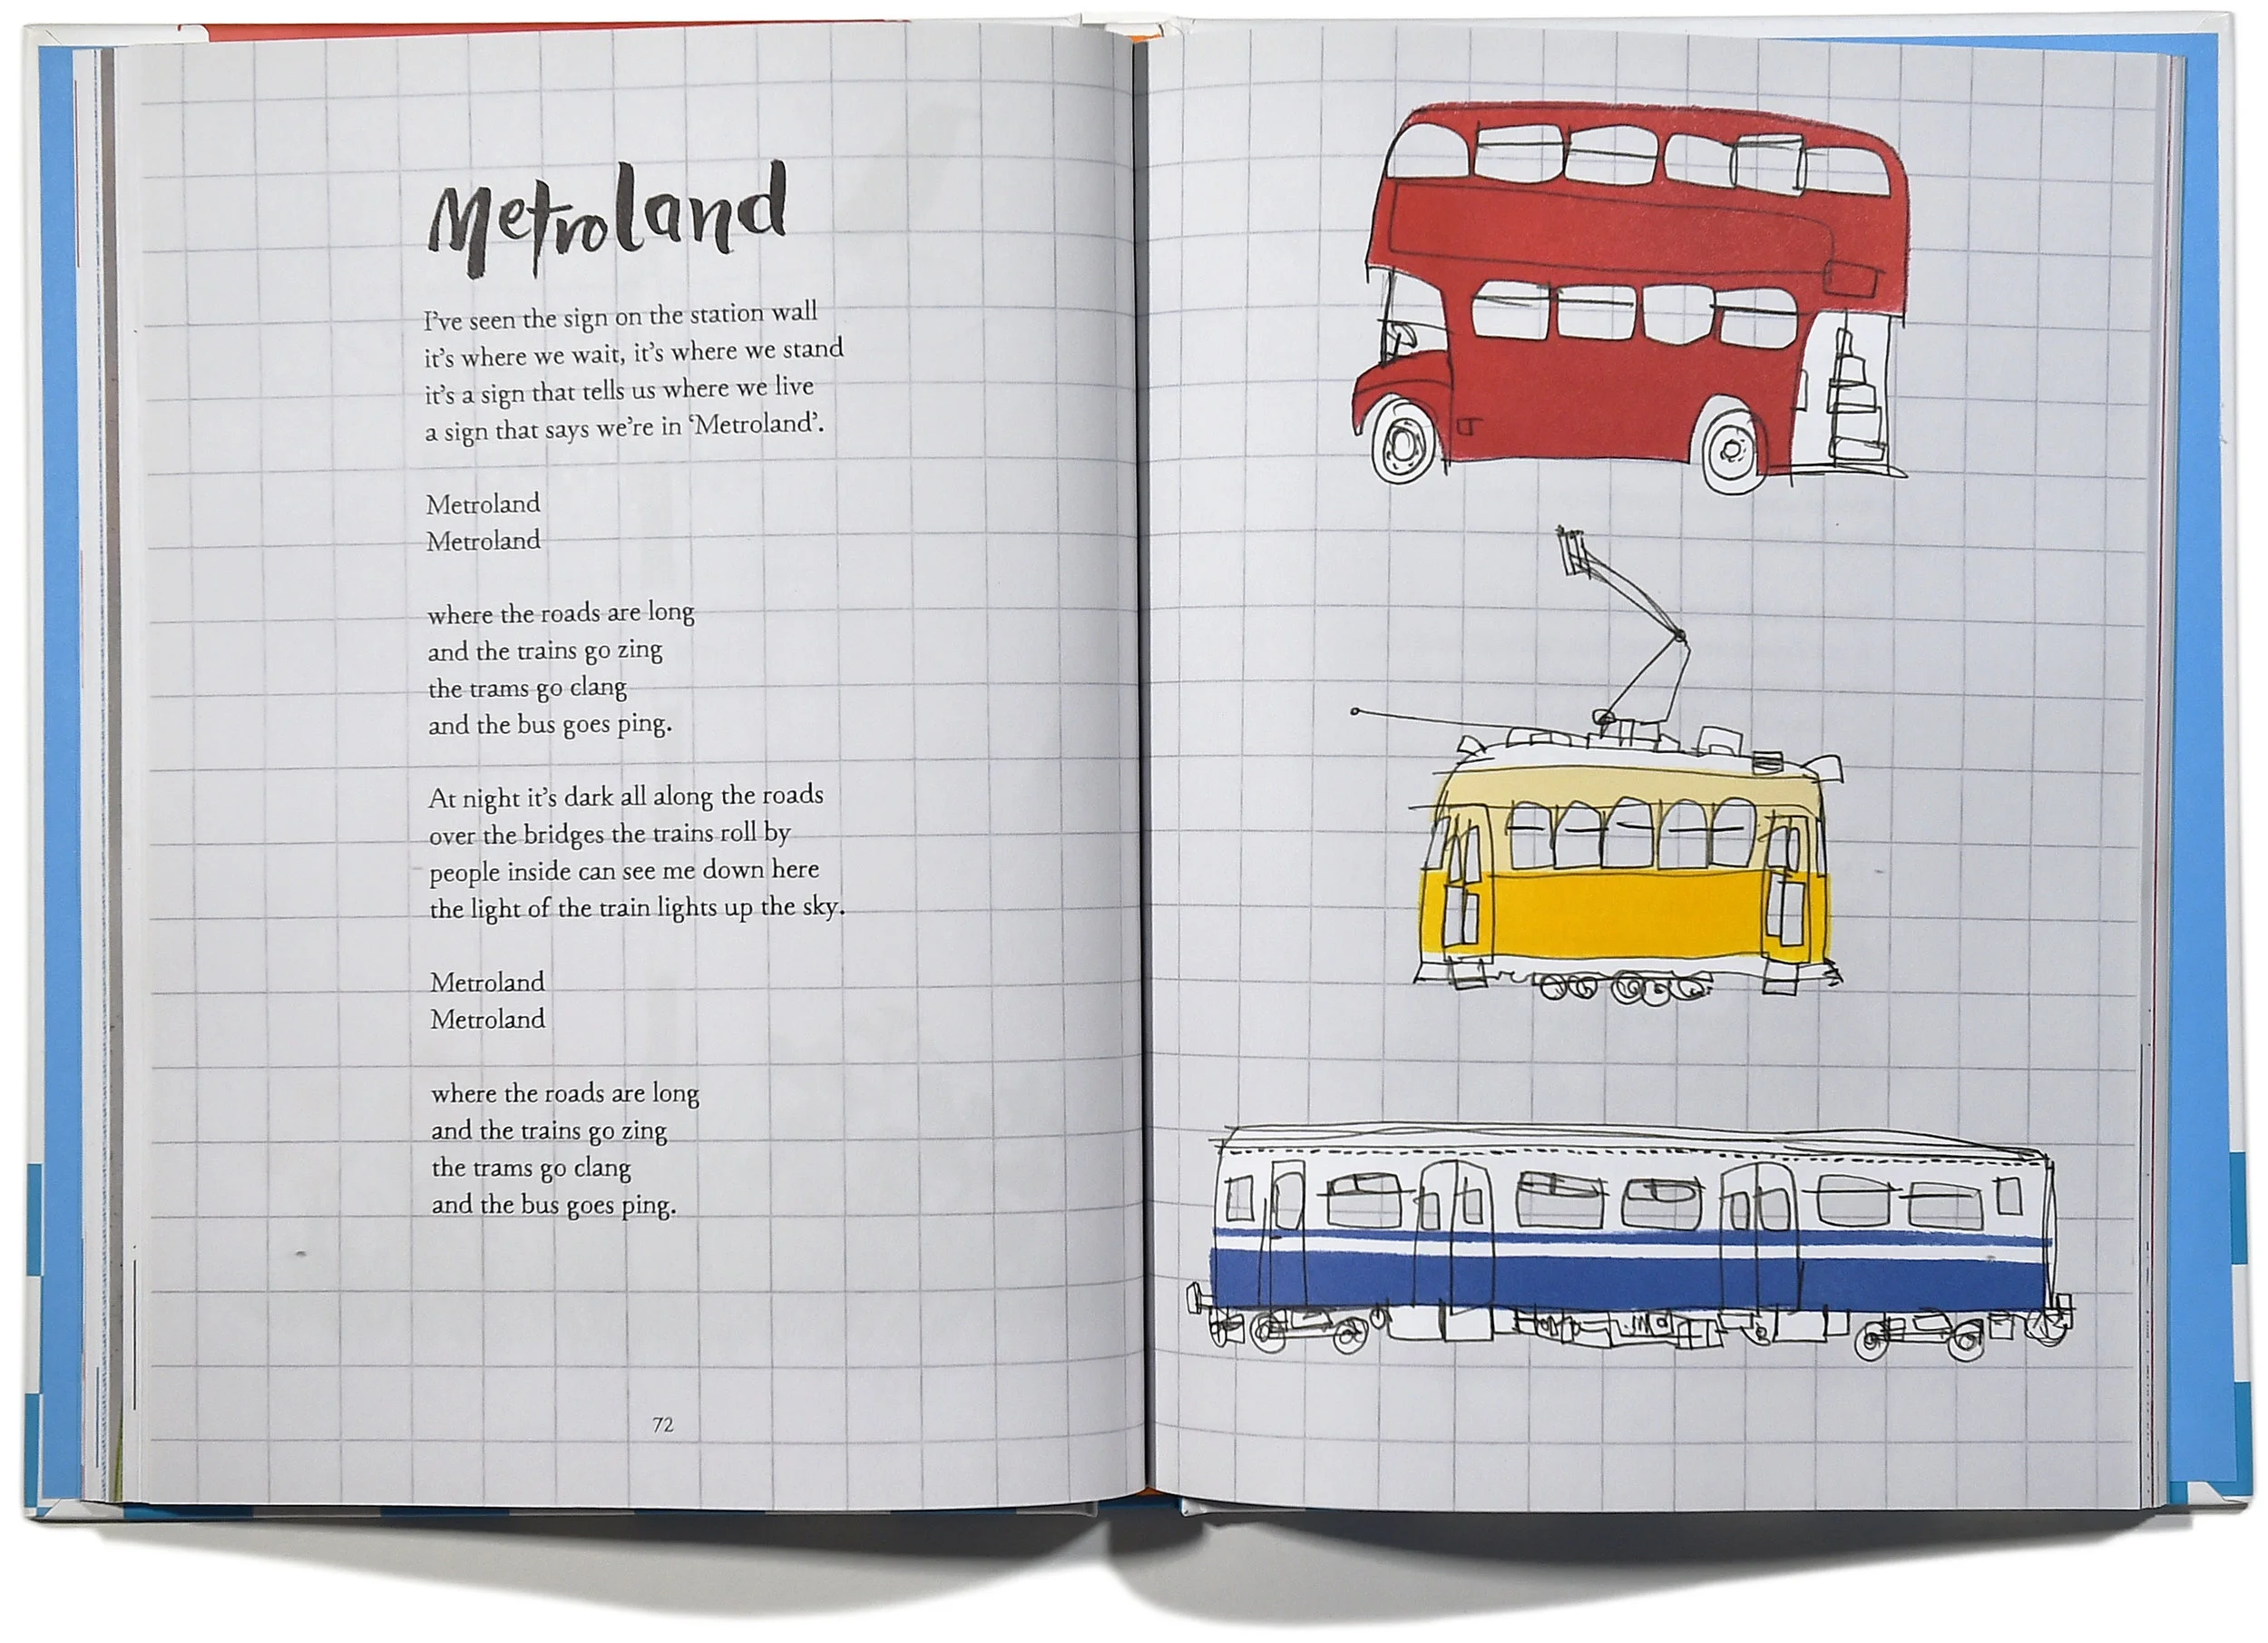 Metroland
I've seen the sign on the station wall
it's where we wait, it's where we stand
it's a sign that tells us where we live
a sign that says we're in ‘Metroland’.
Metroland
Metroland
where the roads are long
and the trains go zing
the trams go clang
and the bus goes ping.
At night it's dark all along the roads
over the bridges the trains roll by
people inside can see me down here
the light of the train lights up the sky.
Metroland
Metroland
where the roads are long
and the trains go zing
the trams go clang
and the bus goes ping.
72